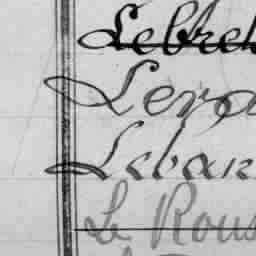 Lebret
Lera
Lebar
Le Rous